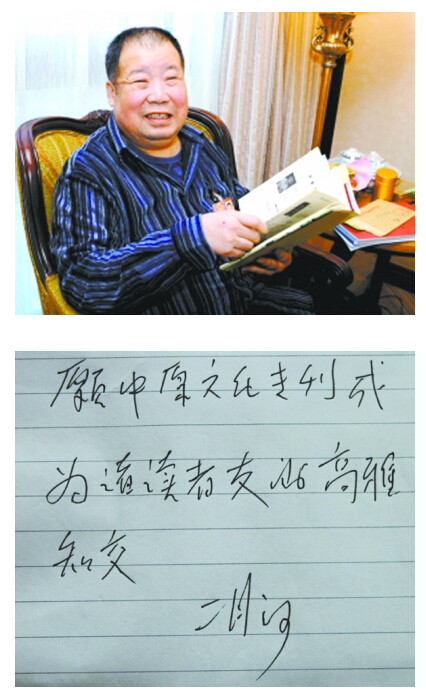 愿中原文化专刊成
为诸读者友的高雅
知交
二月河